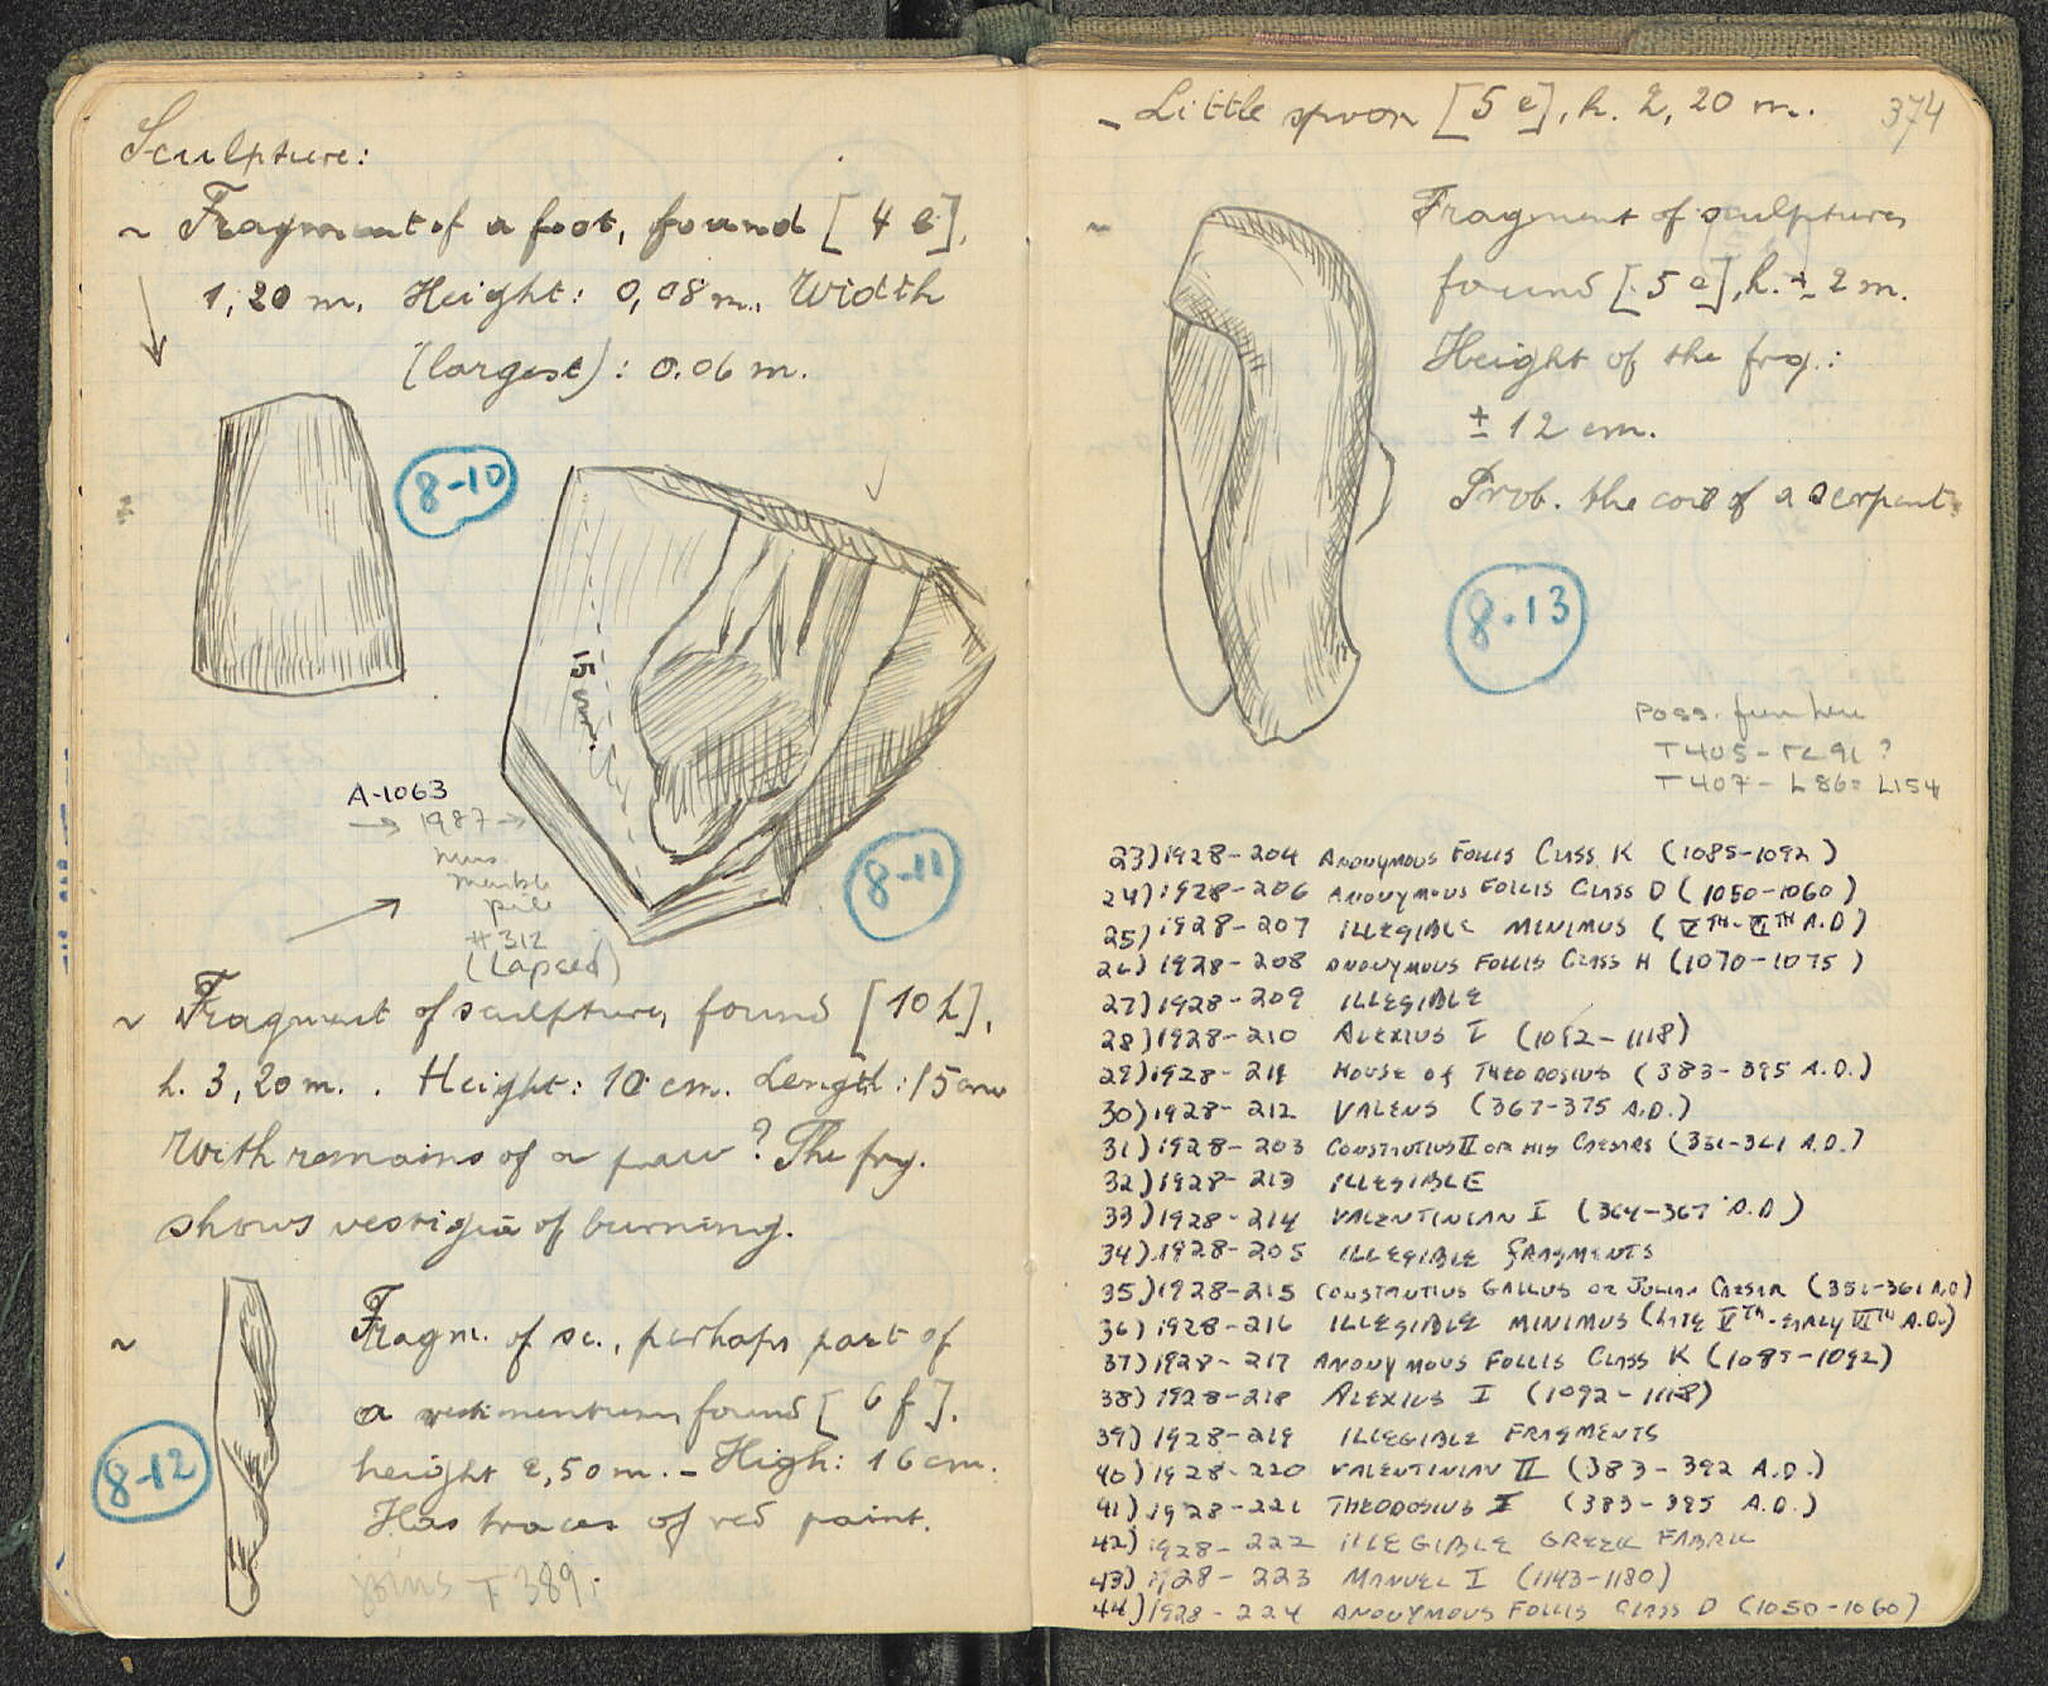 Sculpture:
~ Fragment of a foot, found [4 e],
1,20 m. Height: 0,08 m., Width
(largest): 0.06 m.
8-10
15 cm.
A-1063
→ 1987 →
mus.
marble
pile
#312
(Lapsed)
8-11
~ Fragment of sculpture, found [10 h],
h. 3,20 m. . Height: 10 cm. Length: 15 cm
With remains of a paw? The frg.
shows vestigia of burning.
~ Fragm. of sc., perhaps part of
a vestimentum, found [6 f].
height 2,50 m. – High: 16 cm.
Has traces of red paint.
8-12
joins T 389.
374
– Little spoon [5 e], h. 2,20 m.
~ Fragment of sculpture,
found [5 e], h. ± 2 m.
Height of the frg.:
± 12 cm.
Prob. the coil of a serpent.
8-13
Poss. from here
T 405 -
T 407 - L 86 = L154
23) 1928-204 ANONYMOUS FOLLIS CLASS K (1085-1092)
24) 1928-206 ANONYMOUS FOLLIS CLASS D (1050-1060)
25) 1928-207 ILLEGIBLE MINIMUS (VTH-VITH A.D)
26) 1928-208 ANONYMOUS FOLLIS CLASS H (1070-1075)
27) 1928-209 ILLEGIBLE
28) 1928-210 ALEXIUS I (1092-1118)
29) 1928-211 HOUSE OF THEODOSIUS (383-395 A.D.)
30) 1928-212 VALENS (367-375 A.D.)
31) 1928-203 CONSTANTIUS II OR HIS CAESARS (351-361 A.D.)
32) 1928-213 ILLEGIBLE
33) 1928-214 VALENTINIAN I (364-367 A.D)
34) 1928-205 ILLEGIBLE FRAGMENTS
35) 1928-215 CONSTANTIUS GALLUS OR JULIAN CAESAR (351-361 A.D)
36) 1928-216 ILLEGIBLE MINIMUS (LATE VTH-EARLY VITH A.D.)
37) 1928-217 ANONYMOUS FOLLIS CLASS K (1085-1092)
38) 1928-218 ALEXIUS I (1092-1118)
39) 1928-219 ILLEGIBLE FRAGMENTS
40) 1928-220 VALENTINIAN II (383-392 A.D.)
41) 1928-221 THEODOSIUS I (383-395 A.D.)
42) 1928-222 ILLEGIBLE GREEK FABRIC
43) 1928-223 MANUEL I (1143-1180)
44) 1928-224 ANONYMOUS FOLLIS CLASS D (1050-1060)